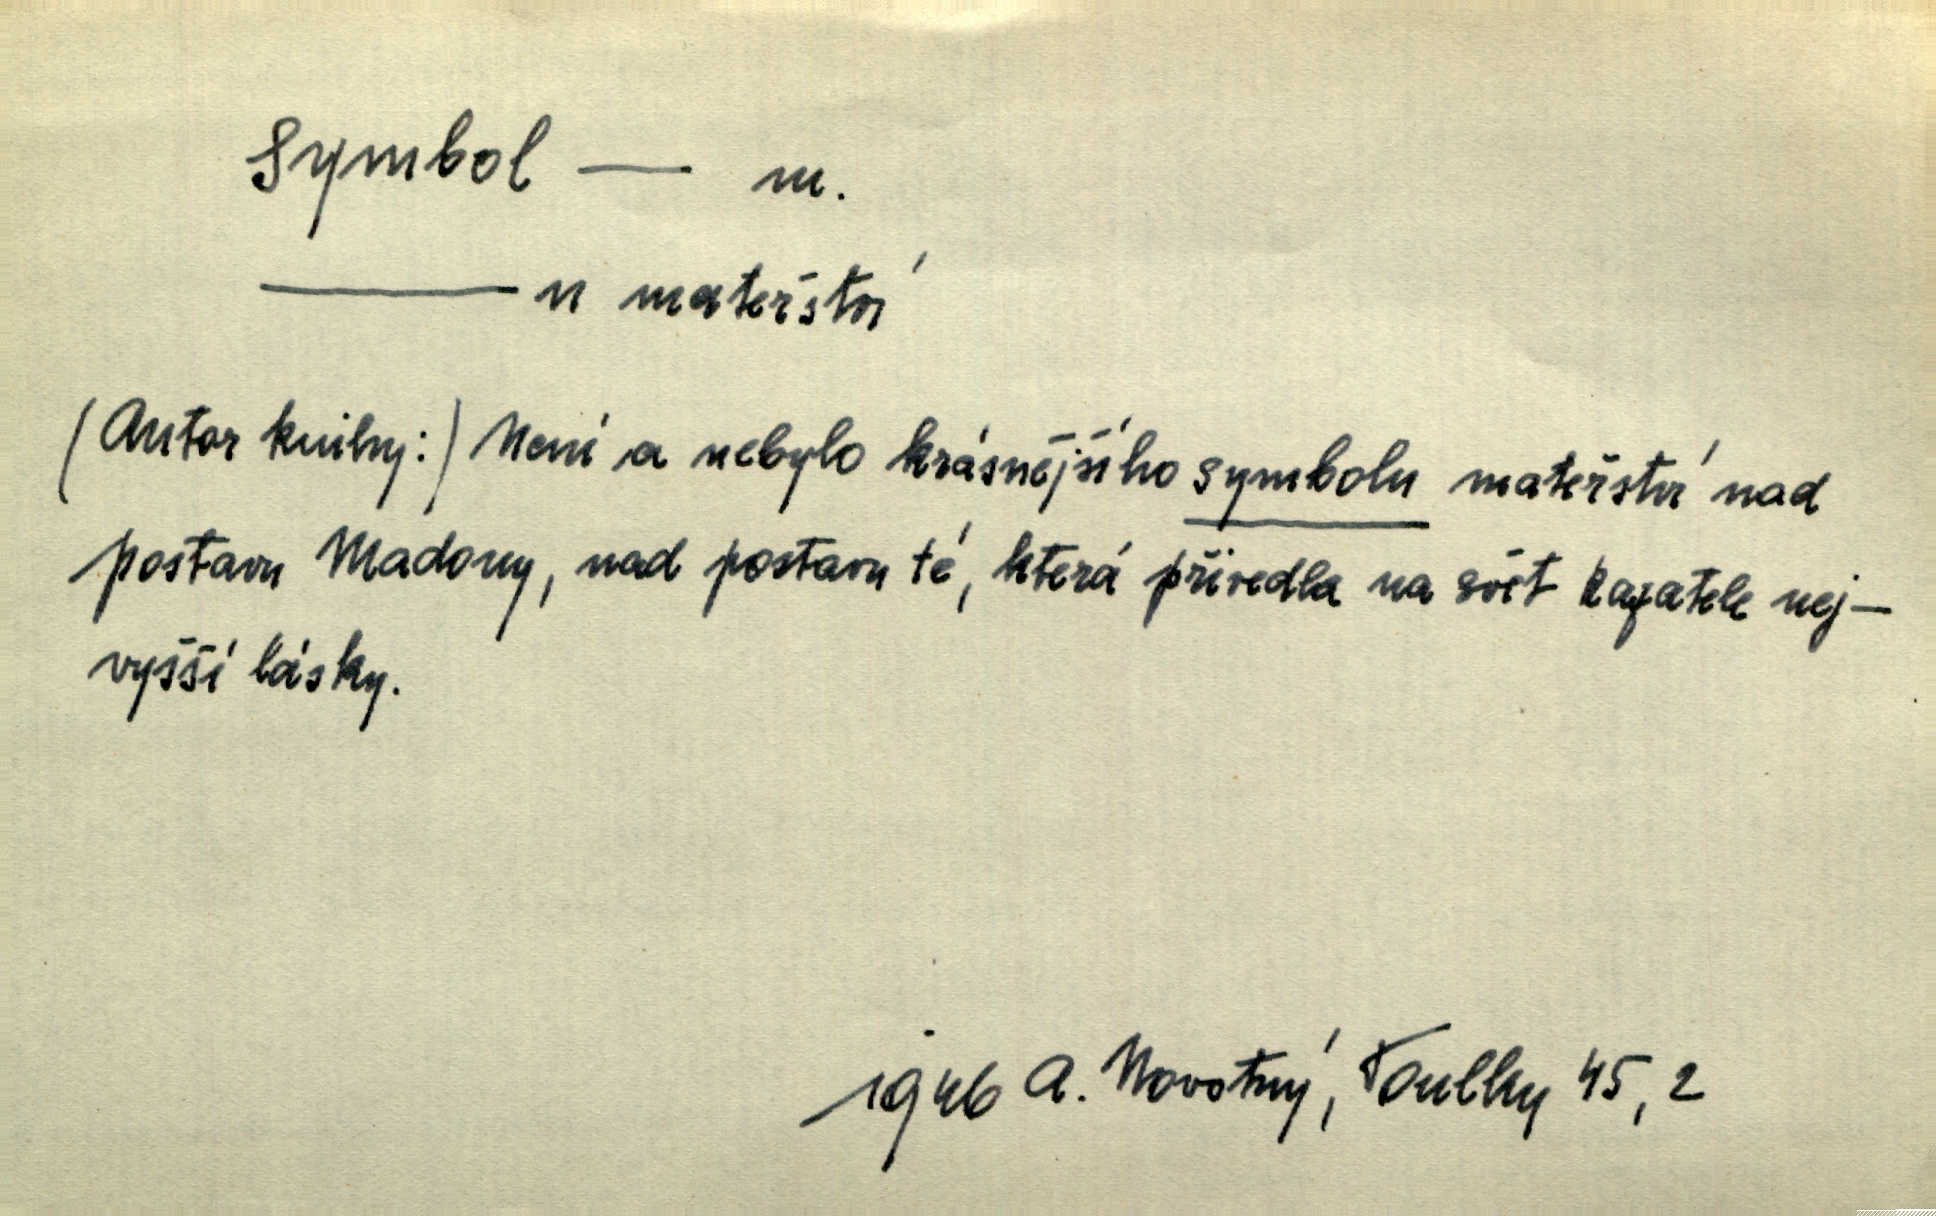 Symbol — m.
——— u mateřství
(Autor knihy:) Není a nebylo krásnějšího symbolu mateřství nad
postavu Madony, nad postavu té, která přivedla na svět kazatele nej-
vyšší lásky.
1946 A. Novotný, Toulky 45, 2